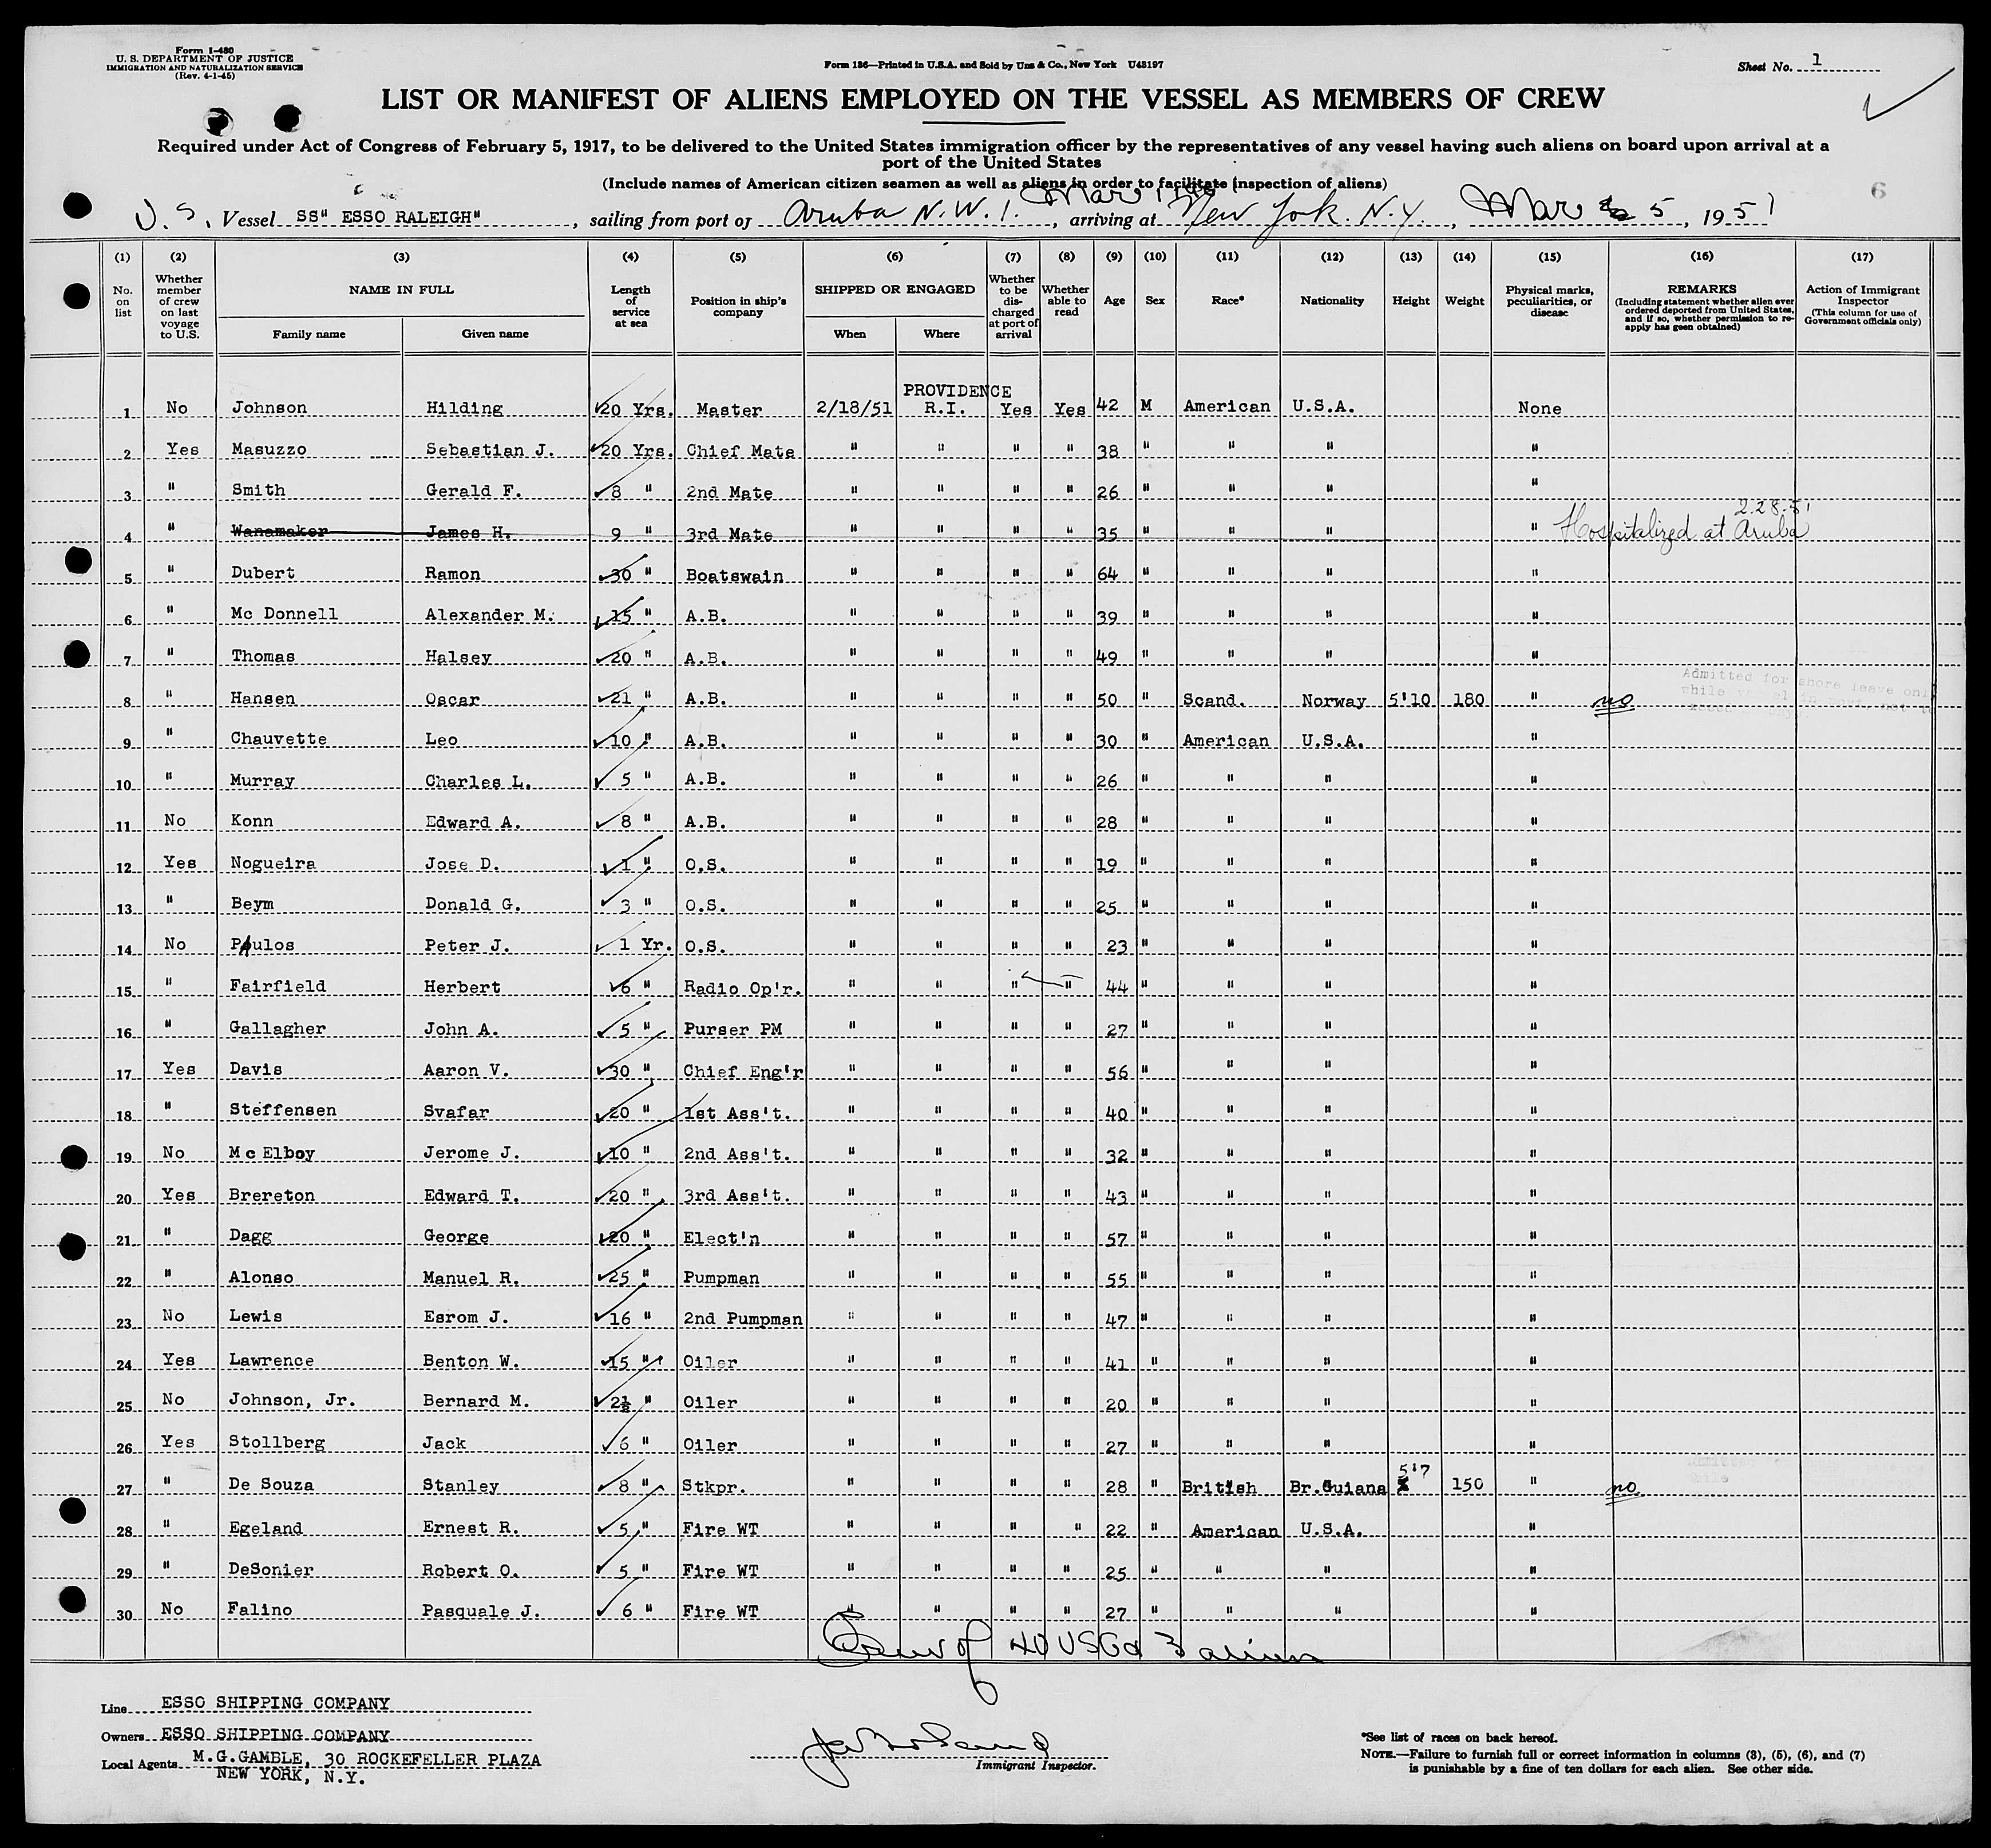 Form I-480
U. S. DEPARTMENT OF JUSTICE
IMMIGRATION AND NATURALIZATION SERVICE
(Rev. 4-1-45)
Form 136—Printed in U.S.A. and Sold by Unz & Co., New York U43197
Sheet No. 1
LIST OR MANIFEST OF ALIENS EMPLOYED ON THE VESSEL AS MEMBERS OF CREW
Required under Act of Congress of February 5, 1917, to be delivered to the United States immigration officer by the representatives of any vessel having such aliens on board upon arrival at a
port of the United States
(Include names of American citizen seamen as well as aliens in order to facilitate inspection of aliens)
6
U. S. Vessel SS" ESSO RALEIGH", sailing from port of Aruba N.W.I. Mar 1, arriving at New York. N.Y., Mar 5, 1951
(1) (2) (3) (4) (5) (6) (7) (8) (9) (10) (11) (12) (13) (14) (15) (16) (17)
No. on list
Whether member of crew on last voyage to U.S.
NAME IN FULL
Family name Given name
Length of service at sea
Position in ship's company
SHIPPED OR ENGAGED
When Where
Whether to be discharged at port of arrival
Whether able to read
Age Sex Race* Nationality Height Weight
Physical marks, peculiarities, or disease
REMARKS
(Including statement whether alien ever ordered deported from United States, and if so, whether permission to re-apply has been obtained)
Action of Immigrant Inspector
(This column for use of Government officials only)
1 No Johnson Hilding 20 Yrs. Master 2/18/51 PROVIDENCE R.I. Yes Yes 42 M American U.S.A. None
2 Yes Masuzzo Sebastian J. 20 Yrs. Chief Mate " " " " 38 " " " "
3 " Smith Gerald F. 8 " 2nd Mate " " " " 26 " " " "
4 " Wanamaker James H. 9 " 3rd Mate " " " " 35 " " " " Hospitalized at Aruba 2.28.51
5 " Dubert Ramon 30 " Boatswain " " " " 64 " " " "
6 " Mc Donnell Alexander M. 15 " A.B. " " " " 39 " " " "
7 " Thomas Halsey 20 " A.B. " " " " 49 " " " "
8 " Hansen Oscar 21 " A.B. " " " " 50 " Scand. Norway 5'10 180 " no Admitted for shore leave only while vessel in port, not to
9 " Chauvette Leo 10 " A.B. " " " " 30 " American U.S.A. "
10 " Murray Charles L. 5 " A.B. " " " " 26 " " " "
11 No Konn Edward A. 8 " A.B. " " " " 28 " " " "
12 Yes Nogueira Jose D. 1 " O.S. " " " " 19 " " " "
13 " Beym Donald G. 3 " O.S. " " " " 25 " " " "
14 No Poulos Peter J. 1 Yr. O.S. " " " " 23 " " " "
15 " Fairfield Herbert 6 " Radio Op'r. " " " " 44 " " " "
16 " Gallagher John A. 5 " Purser PM " " " " 27 " " " "
17 Yes Davis Aaron V. 30 " Chief Eng'r " " " " 56 " " " "
18 " Steffensen Svafar 20 " 1st Ass't. " " " " 40 " " " "
19 No Mc Elboy Jerome J. 10 " 2nd Ass't. " " " " 32 " " " "
20 Yes Brereton Edward T. 20 " 3rd Ass't. " " " " 43 " " " "
21 " Dagg George 20 " Elect'n " " " " 57 " " " "
22 " Alonso Manuel R. 25 " Pumpman " " " " 55 " " " "
23 No Lewis Esrom J. 16 " 2nd Pumpman " " " " 47 " " " "
24 Yes Lawrence Benton W. 15 " Oiler " " " " 41 " " " "
25 No Johnson, Jr. Bernard M. 2½ " Oiler " " " " 20 " " " "
26 Yes Stollberg Jack 6 " Oiler " " " " 27 " " " "
27 " De Souza Stanley 8 " Stkpr. " " " " 28 " British Br.Guiana 5'7 150 " no
28 " Egeland Ernest R. 5 " Fire WT " " " " 22 " American U.S.A. "
29 " DeSonier Robert O. 5 " Fire WT " " " " 25 " " " "
30 No Falino Pasquale J. 6 " Fire WT " " " " 27 " " " "
Crew of 40 USC & 3 aliens
Line ESSO SHIPPING COMPANY
Owners ESSO SHIPPING COMPANY
Local Agents M.G.GAMBLE, 30 ROCKEFELLER PLAZA
NEW YORK, N.Y.
Immigrant Inspector.
*See list of races on back hereof.
NOTE.—Failure to furnish full or correct information in columns (3), (5), (6), and (7)
is punishable by a fine of ten dollars for each alien. See other side.